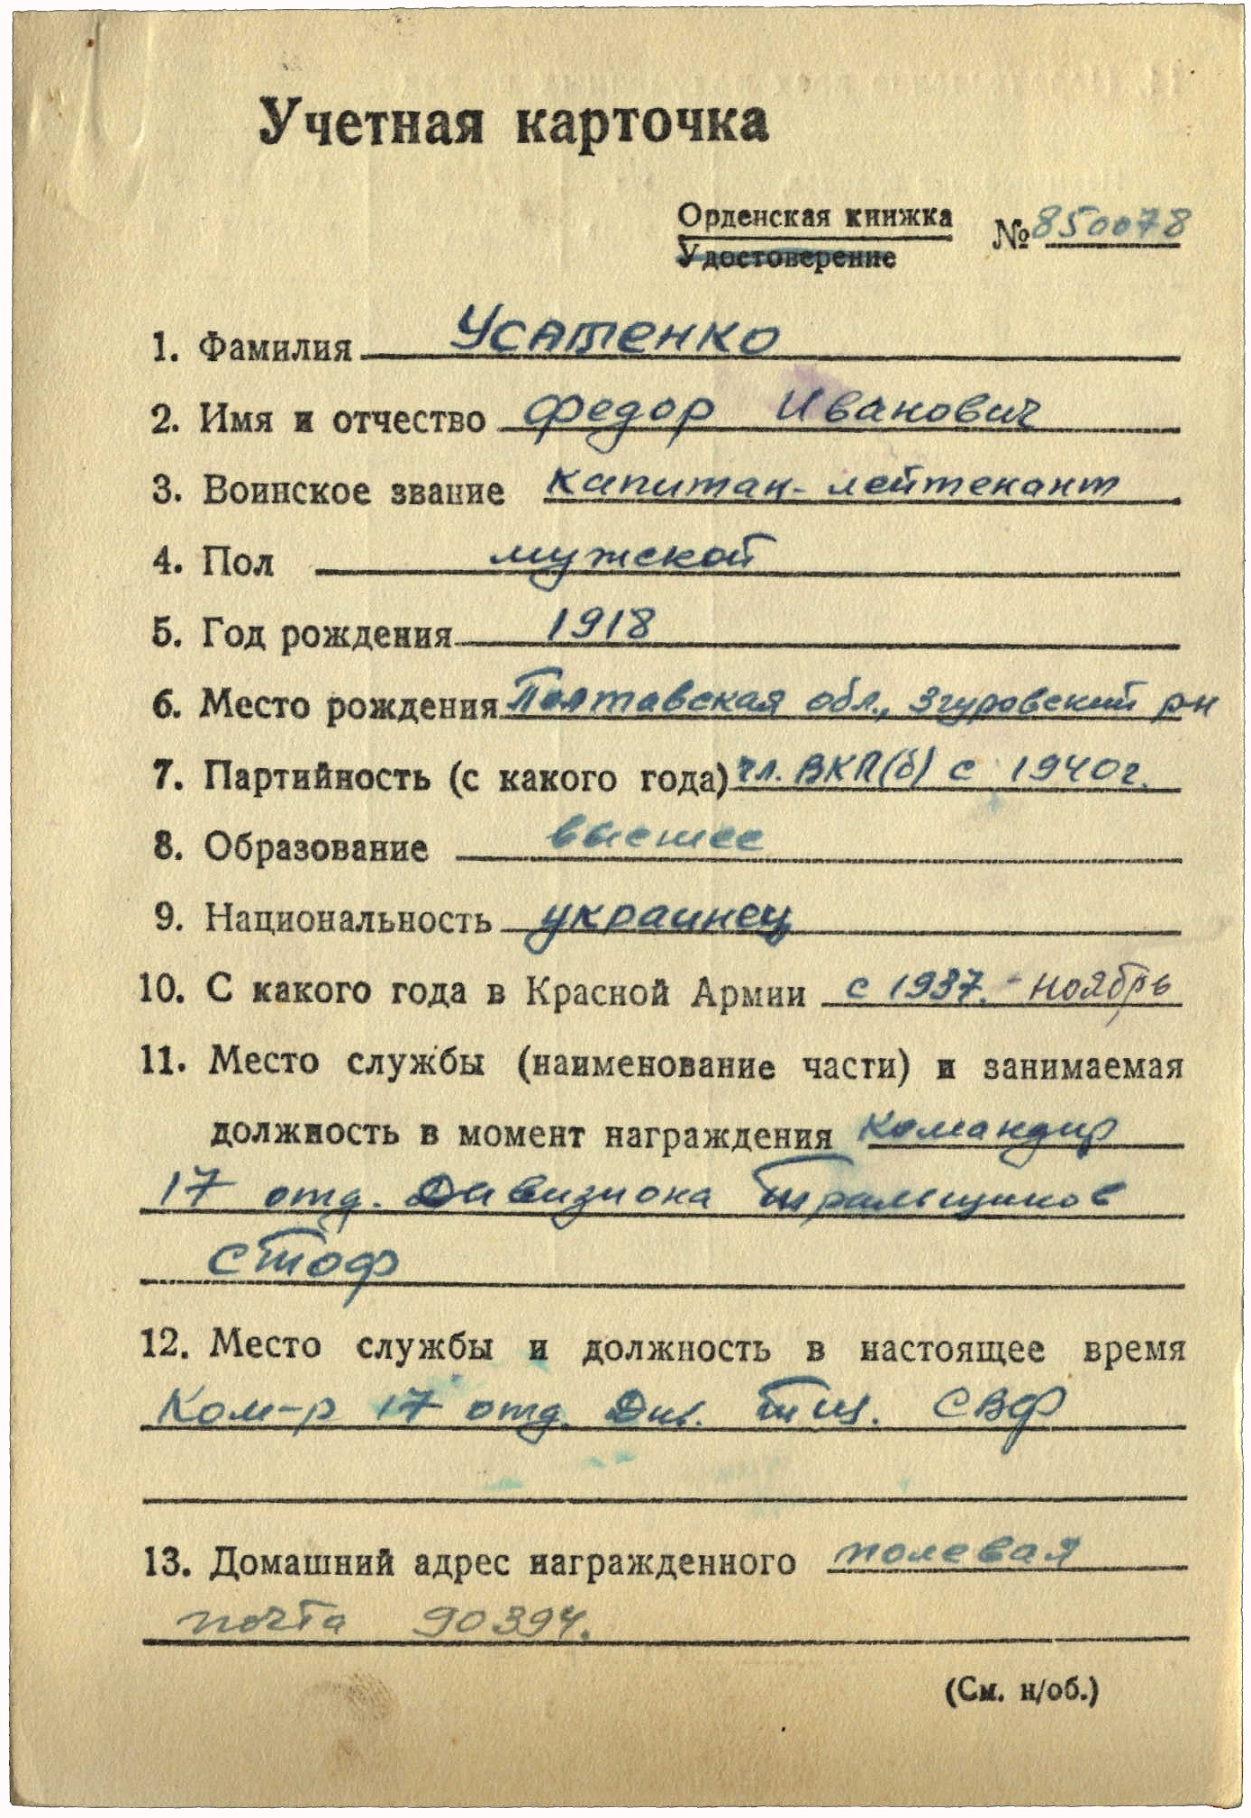 Учетная карточка
Орденская книжка
Удостоверение
№ 850078
1. Фамилия Усатенко
2. Имя и отчество Федор Иванович
3. Воинское звание капитан-лейтенант
4. Пол мужской
5. Год рождения 1918
6. Место рождения Полтавская обл., Згуровский р-н
7. Партийность (с какого года) чл. ВКП(б) с 1940г.
8. Образование высшее
9. Национальность украинец
10. С какого года в Красной Армии с 1937. - ноябрь
11. Место службы (наименование части) и занимаемая
должность в момент награждения Командир
17 отд. Дивизиона Тральщиков
СТОФ
12. Место службы и должность в настоящее время
Ком-р 17 отд. Див. ТЩ. СВФ
13. Домашний адрес награжденного полевая
почта 90394.
(См. н/об.)